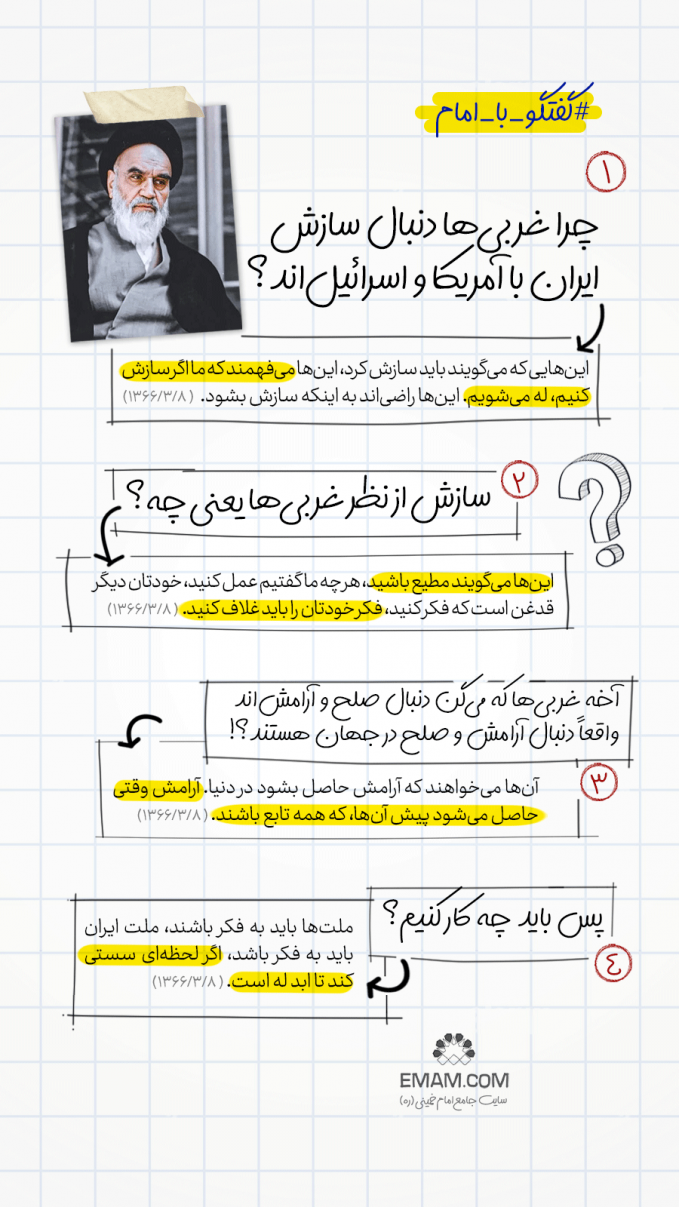 #گفتگو_با_امام
۱
چرا غربی‌ها دنبال سازش
ایران با آمریکا و اسرائیل‌اند؟
این‌هایی که می‌گویند باید سازش کرد، این‌ها می‌فهمند که ما اگر سازش
کنیم، له می‌شویم. این‌ها راضی‌اند به اینکه سازش بشود. (۱۳۶۶/۳/۸)
۲
سازش از نظر غربی‌ها یعنی چه؟
این‌ها می‌گویند مطیع باشید، هرچه ما گفتیم عمل کنید، خودتان دیگر
قدغن است که فکر کنید، فکر خودتان را باید غلاف کنید. (۱۳۶۶/۳/۸)
آخه غربی‌ها که می‌گن دنبال صلح و آرامش‌اند
واقعاً دنبال آرامش و صلح در جهان هستند؟!
۳
آن‌ها می‌خواهند که آرامش حاصل بشود در دنیا. آرامش وقتی
حاصل می‌شود پیش آن‌ها، که همه تابع باشند. (۱۳۶۶/۳/۸)
پس باید چه کار کنیم؟
۴
ملت‌ها باید به فکر باشند، ملت ایران
باید به فکر باشد، اگر لحظه‌ای سستی
کند تا ابد له است. (۱۳۶۶/۳/۸)
EMAM.COM
سایت جامع امام خمینی (ره)